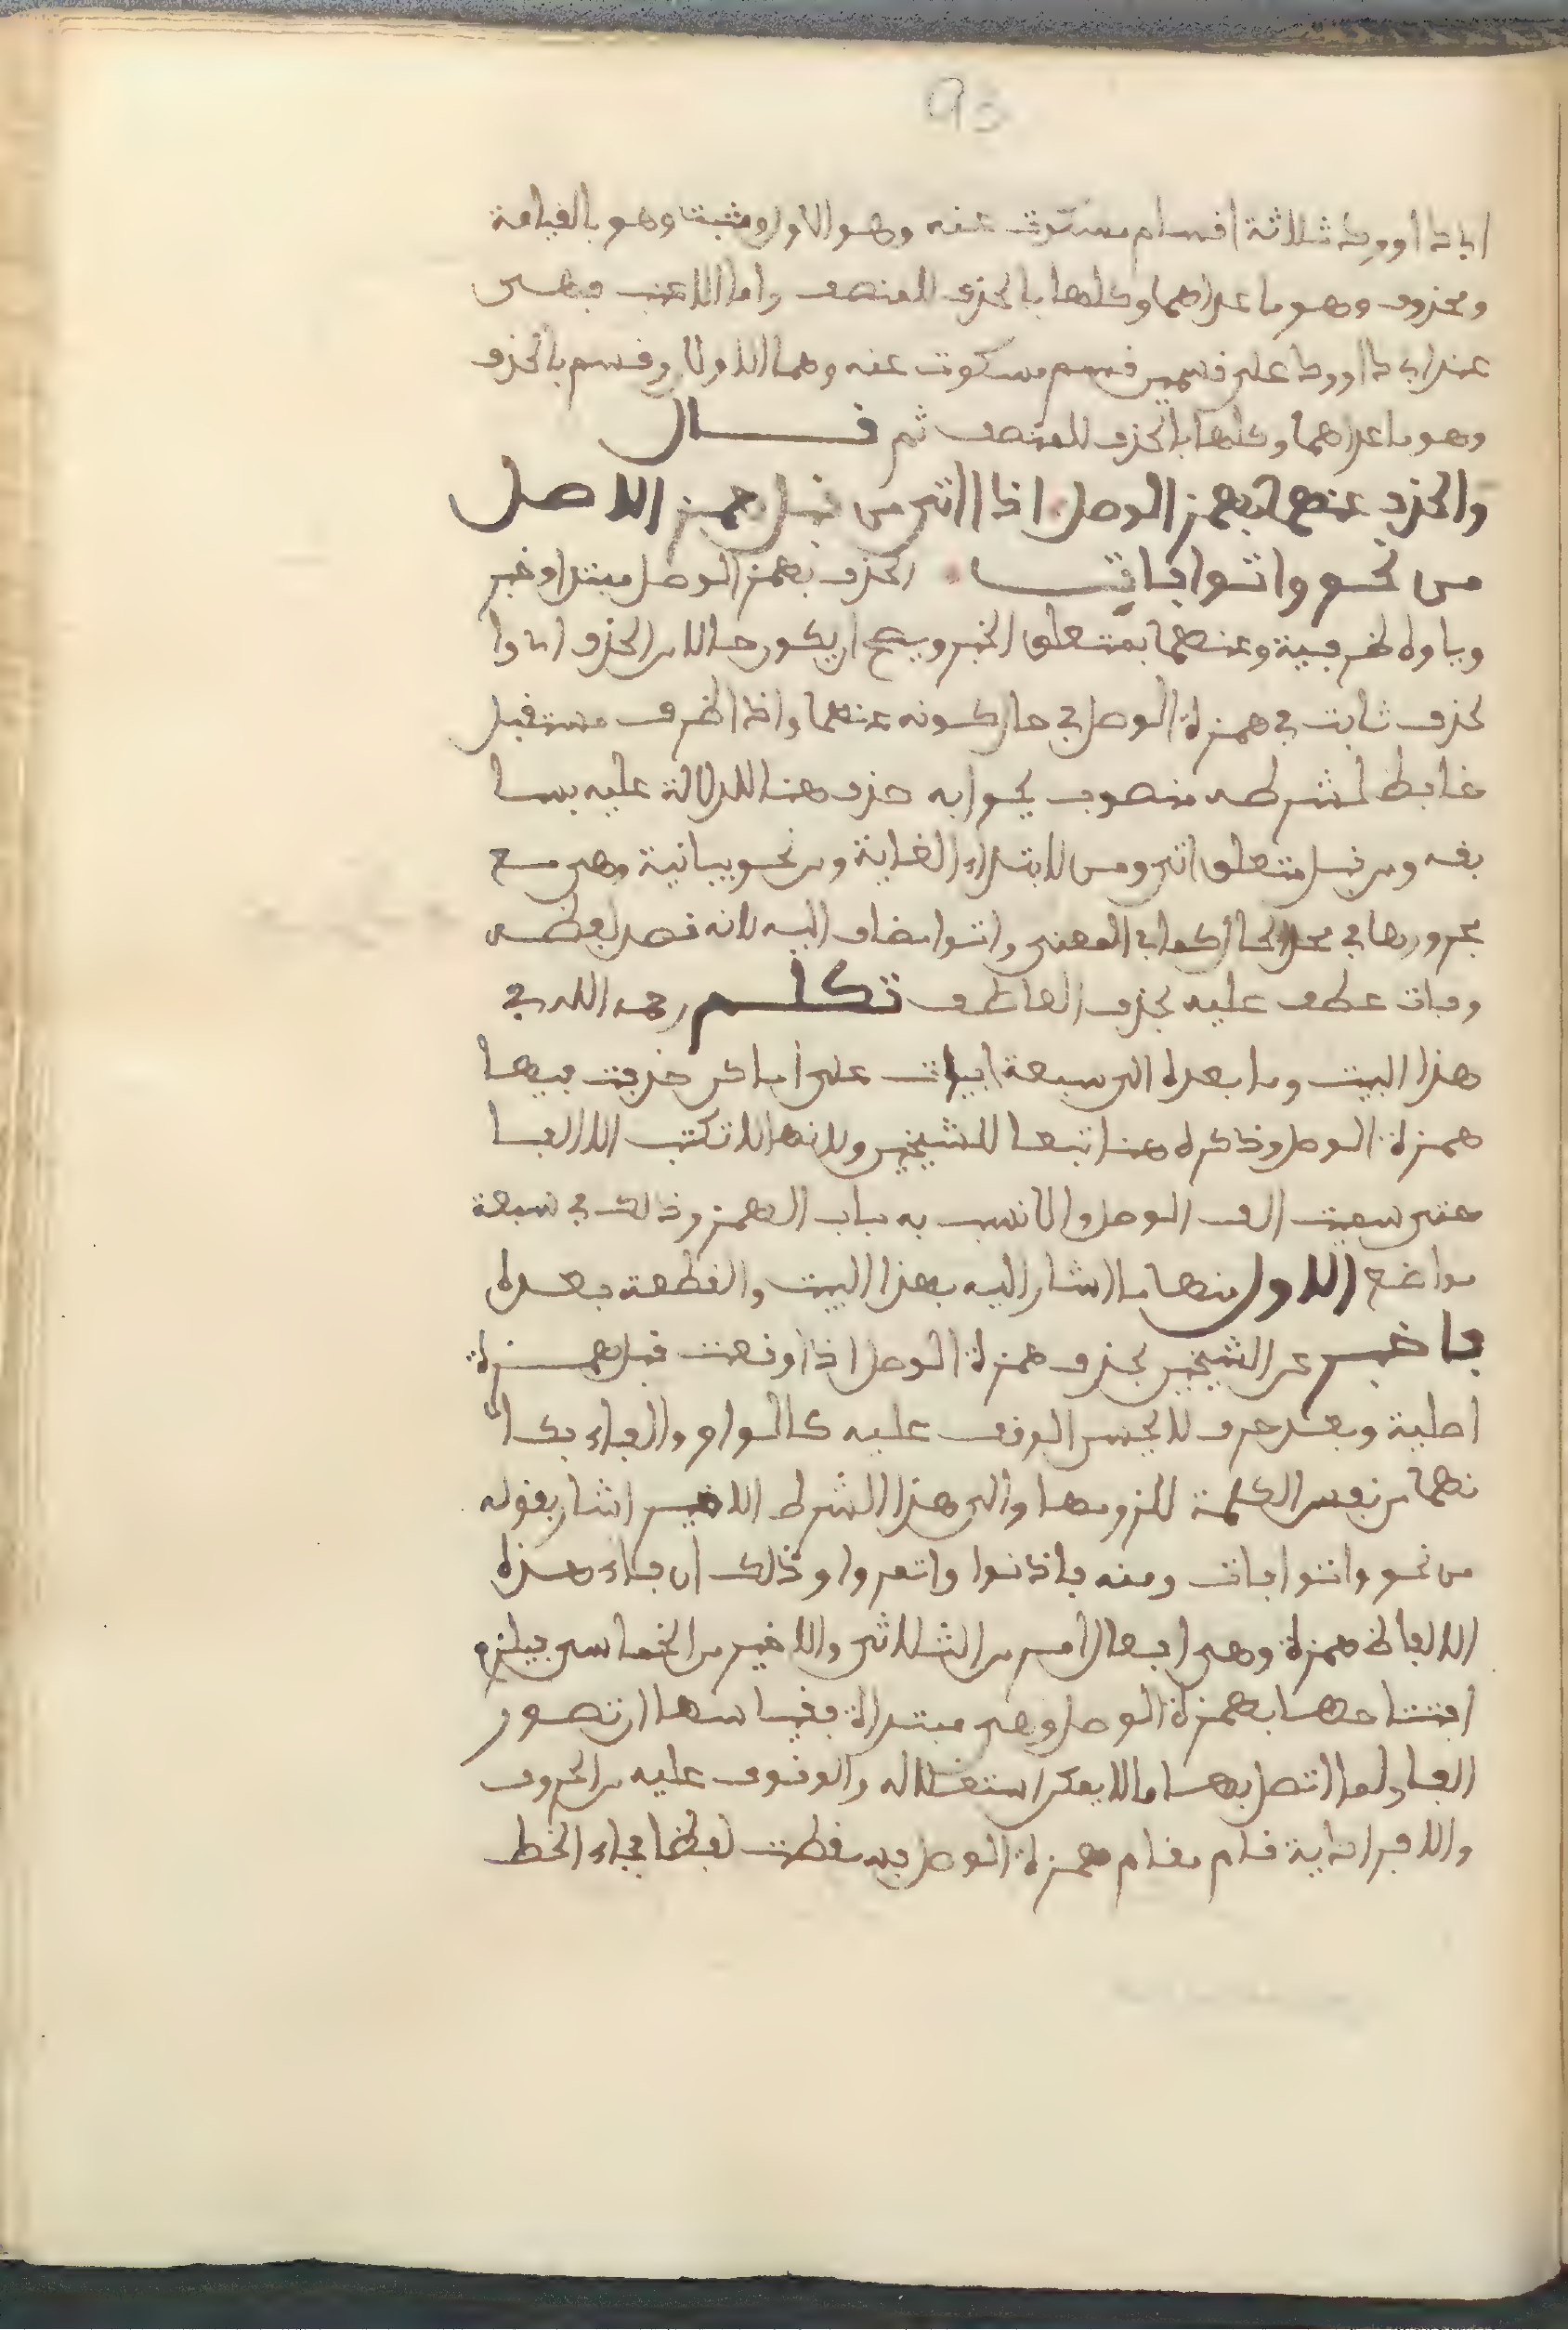 93
ابي داوود ثلاثة اقسام مسكوت عنه وهو الاول ومثبت وهو بالقيامة
ومحذوف وهو ما عداهما وكلها بالحذف للمنصف واما اللاعب فهي
عند ابي داوود على قسمين قسم مسكوت عنه وهما الاولان وقسم بالحذف
وهو ما عداهما وكلها بالحذف للمنصف ثم قال
والحذف عنهما بهمز الوصل اذا اتى من قبل همز الاصل
من نحو واتوا فات الحذف بهمز الوصل مبتدا وخبر
وباوه ظرفية وعنهما بمتعلق الخبر ويصح ان يكون حالا من الحذف
بحذف ثابت في همزة الوصل في حال كونه عنهما واذا ظرف مستقبل
خافظ لشرطه منصوب بجوابه حذف هنا للدلالة عليه بسا
بقه ومن قبل متعلق اتى ومن لابتداء الغاية ومن نحو بيانية وهي مع
مجرورها في محل الحال كما في المعنى واتوا مضاف اليه لانه قصد لفظه
وفات عطف عليه بحذف العاطف تكلم رحمه الله في
هذا البيت وما بعده الى سبعة ابيات على اماكن حذفت فيها
همزة الوصل وذكره هنا تبعا للشيخين ولانها لا تكتب الا الفا
حتى سميت الف الوصل والانسب به باب الهمز وذلك في سبعة
مواضع الاول منها ما اشار اليه بهذا البيت والقطعة بعده
فاخبر عن الشيخين بحذف همزة الوصل اذا وقعت قبل همزة
اصلية وبعد حرف لا يحسن الوقف عليه كالواو والفاء بكا
نهما من نفس الكلمة للزومها والى هذا الشرط الاخير اشار بقوله
من نحو واتوا فات ومنه فاذنوا واتمروا وذلك ان فاء هذه
الالفاظ همزة وهي افعال امر من الثلاثي والاخير من الخماسي فيلزم
افتتاحها بهمزة الوصل وهي مبتداة فقياسها ان تصور
الفا ولما اتصل بها ما لا يمكن استقلاله والوقوف عليه من الحروف
والافرادية قام مقام همزة الوصل فسقطت لفظا فجاء الخط